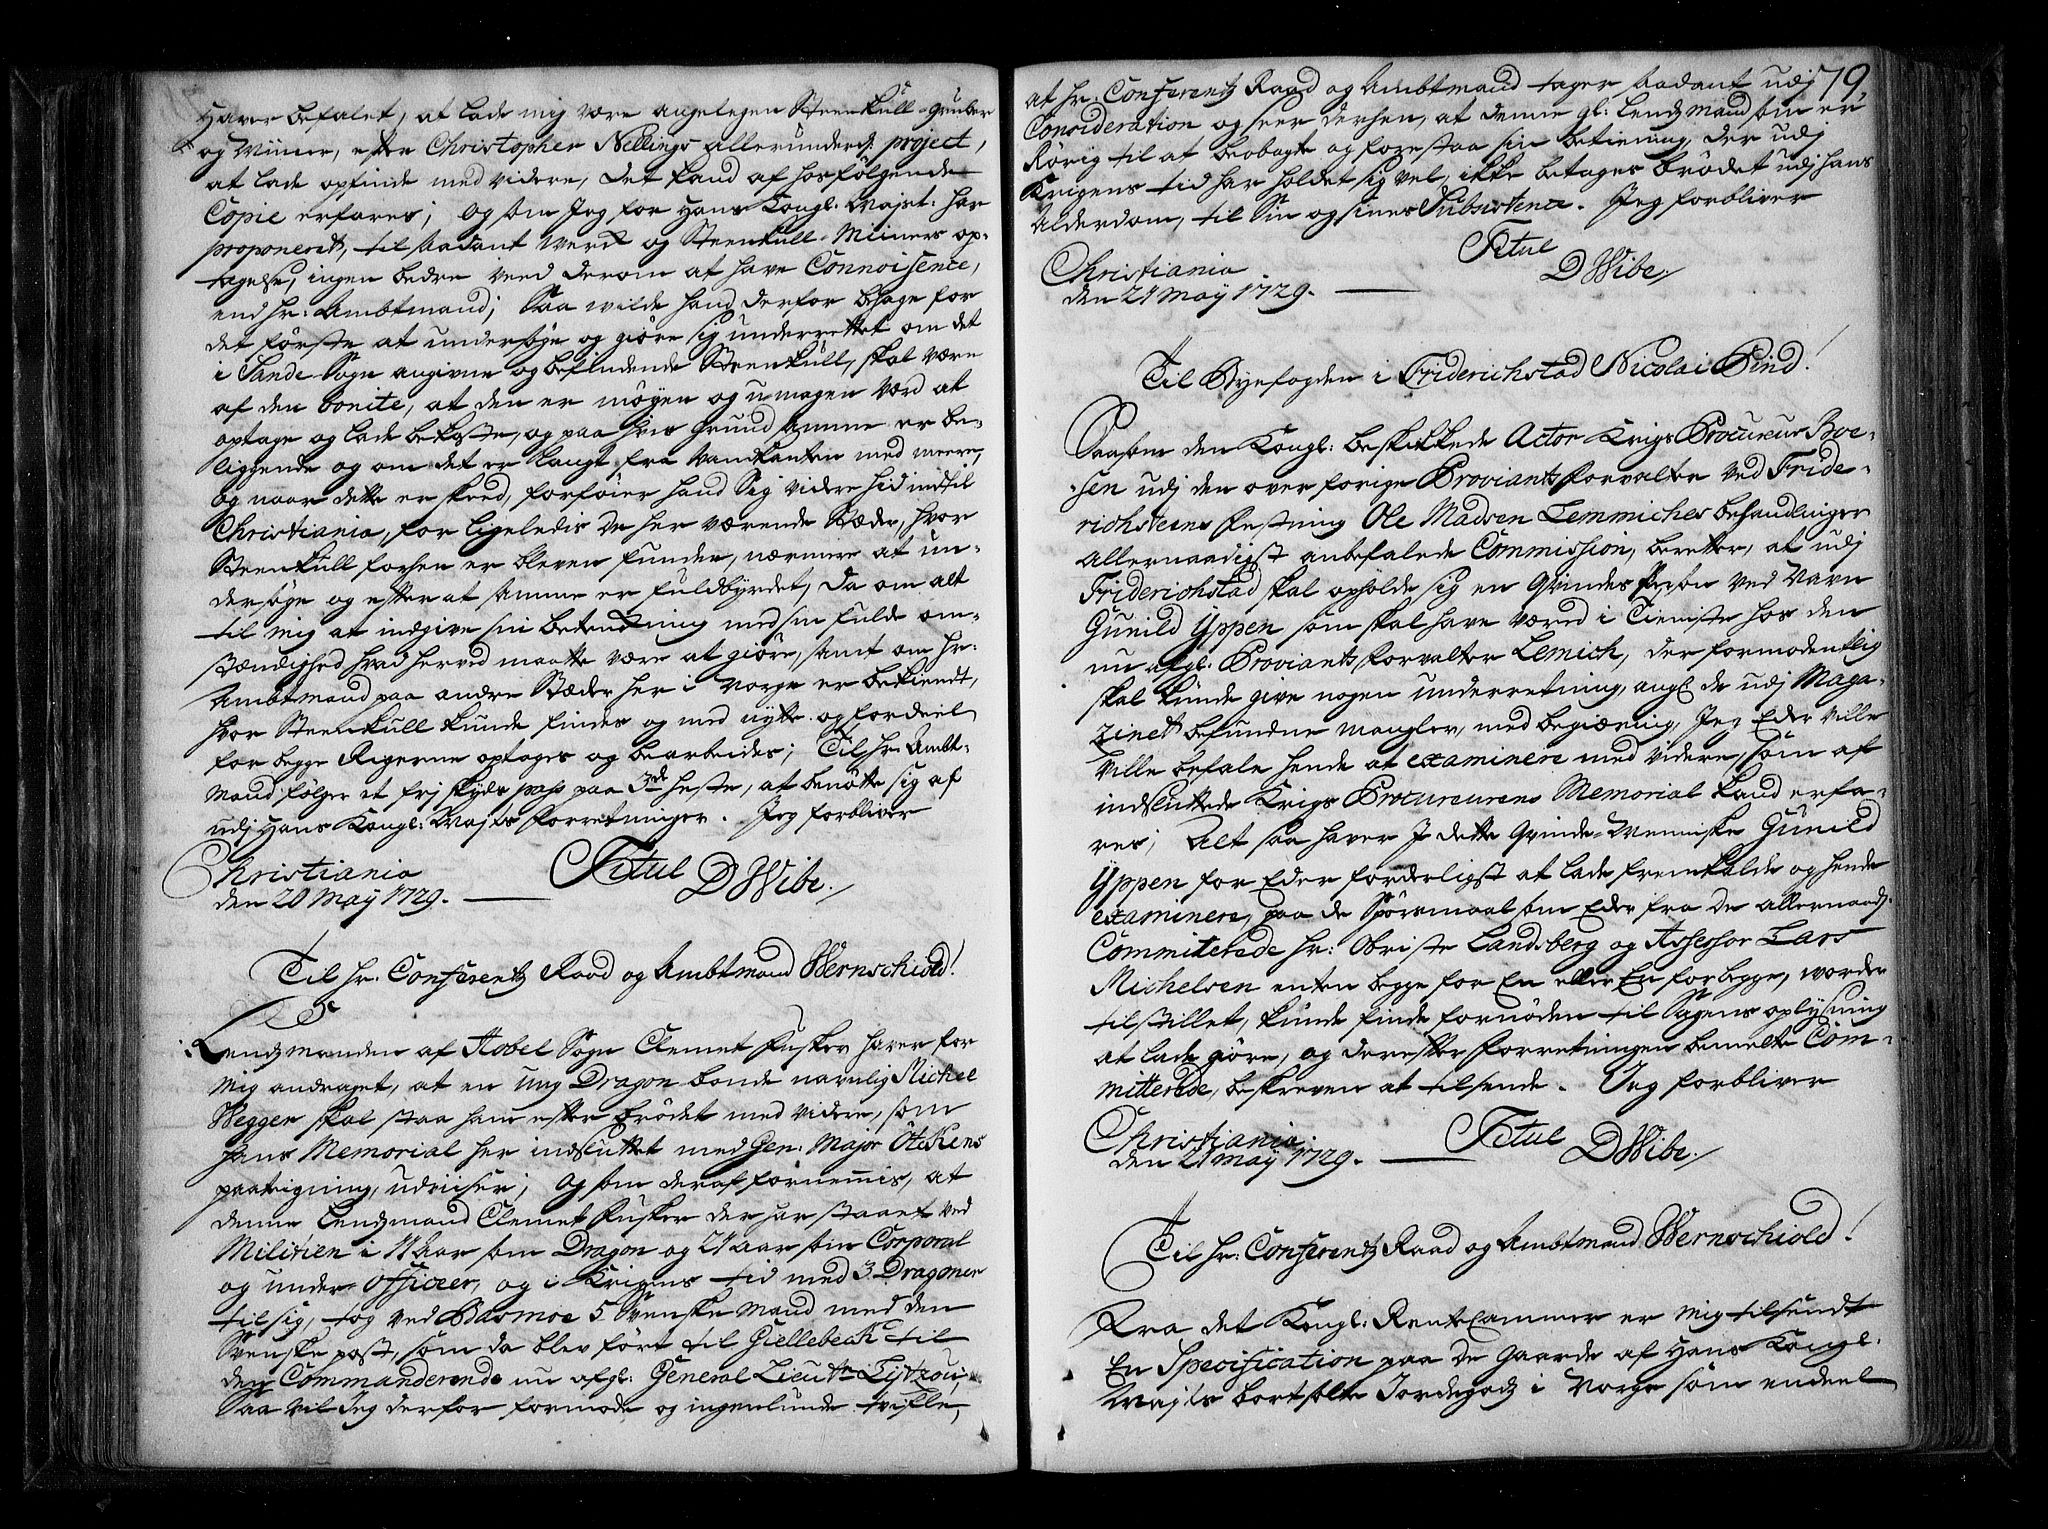 Haver befalet, at lade mig være angelegen Steenkull-Gruber
og Miiner, efter Christopher Nellings allerunderd: project,
at lade opfinde med videre, det kand af hosfölgende
Copie erfares; Og som Jeg for Hans Kongl: Majst: har
proponerit, til saadant Verk og Steenkull-Miiners op-
tagelse, ingen bedre veed derom at have Connoisence,
end Hr: Ambtmand; Saa wilde hand derfor behage for
det förste at undersöge og giöre sig underrettet om det
i Sande Sogn angivne og befindende Steenkull, skal være
af den bonite, at den er möyen og umagen værd at
optage og lade bekoste, og paa hvis Grund samme er be-
liggende og om det er langt fra Vandkanten med meere,
og naar dette er skeed, forföier hand Sig videre hid indtil
Christiania, for ligeledis de her værende Stæder, hvor
Steenkull forhen er bleven funden, nærmere at un-
dersöge og efter at samme er fuldbyrdet, da om alt
til mig at indgive sin betenkning med sin fulde om-
stændighed hvad herved maatte være at giöre, samt om Hr:
Ambtmand paa andre Stæder her i Norge er bekiendt,
hvor Steenkull kunde findes og med nytte og fordeel
for begge Rigerne optages og bearbeides; Til Hr: Ambt-
mand fölger et frj skyds pass paa 3de heste, at benötte sig af
udj Hans Kongl: Majts forretninger. Jeg forbliver
Christiania
den 20 May 1729. Titul DWibe.
Til Hr: Conferentz Raad og Ambtmand Wernschiold!
Lendsmanden af Hobel Sogn Clemet Fusker haver for
mig andraget, at en ung Dragon bonde navnlig Michel
Weggen skal staa ham efter brödet med videre, som
hans Memorial her indsluttet med Gen: Major Ötkens
paategning, udviser; Og som deraf fornemmis, at
denne Lendsmand Clemet Fusker der har staaet ved
Militien i 11 Aar som Dragon og 21 aar som Corporal
og under-Officer, og i Krigens tid med 3 Dragoner
til sig, tog ved Basmoe 5 Svenske mand med den
Svenske post, som da blev fört til Giellebeck til
den Commanderende nu afgl: General Lieutn Lytzou,
Saa vil Jeg derfor formode og ingenlunde tvifle,
79.
at Hr: Conferentz Raad og Ambtmand tager saadant udj
Consideration og seer derhen, at denne gl: Lendsmand som er
Rörig til at beobagte og forestaa sin betiening, der udj
Krigens tid har holdet sig vel, ikke betages brödet udj hans
Alderdom, til Sin og sines Subsistence. Jeg forbliver
Christiania Titul
den 21 May 1729. DWibe.
Til Byefogden i Friderichstad Nicolai Bind!
Saasom den Kongl: beskikkede Actor Krigs Procureur Boe-
sen udj den over forige Proviantz forvalter ved Fride-
richsteens Festning Ole Madsen Lemmiches behandlinger
allernaadigst anbefalede Commission, beretter, at udj
Friderichstad skal opholde sig en Qvindes Person ved Navn
Gunild Yppen som skal have været i Tieniste hos den
nu afgl: Proviantz forvalter Lemich, der formodentlig
skal kunde give nogen underretning, angl de udj Maga-
zinet befundne mangler, med begiæring, Jeg Eder ville
ville befale hende at examinere med videre, som af
indsluttede Krigs Procureurens Memorial kand erfa-
res; Alt saa haver I dette Qvinde-Menniske Gunild
Yppen for Eder forderligst at lade fremkalde og hende
examinere, paa de Spörsmaal som Eder fra de allernaad:
Committerede Hr: Obriste Landsberg og Assessor Lars
Michelsen enten begge for En eller En for begge, worder
tilstillet, kunde finde fornöden til Sagens oplysning
at lade giöre, og derefter forretningen bemelte Com-
mitterede, beskreven at tilsende. Jeg forbliver
Christiania Titul
den 21 May 1729. DWibe.
Til Hr: Conferentz Raad og Ambtmand Wernschiold!
Fra det Kongl: Rente Cammer er mig tilsendt
En Specification paa De Gaarde af Hans Kongl:
Majts bortsolte Jordegodz i Norge som endeel